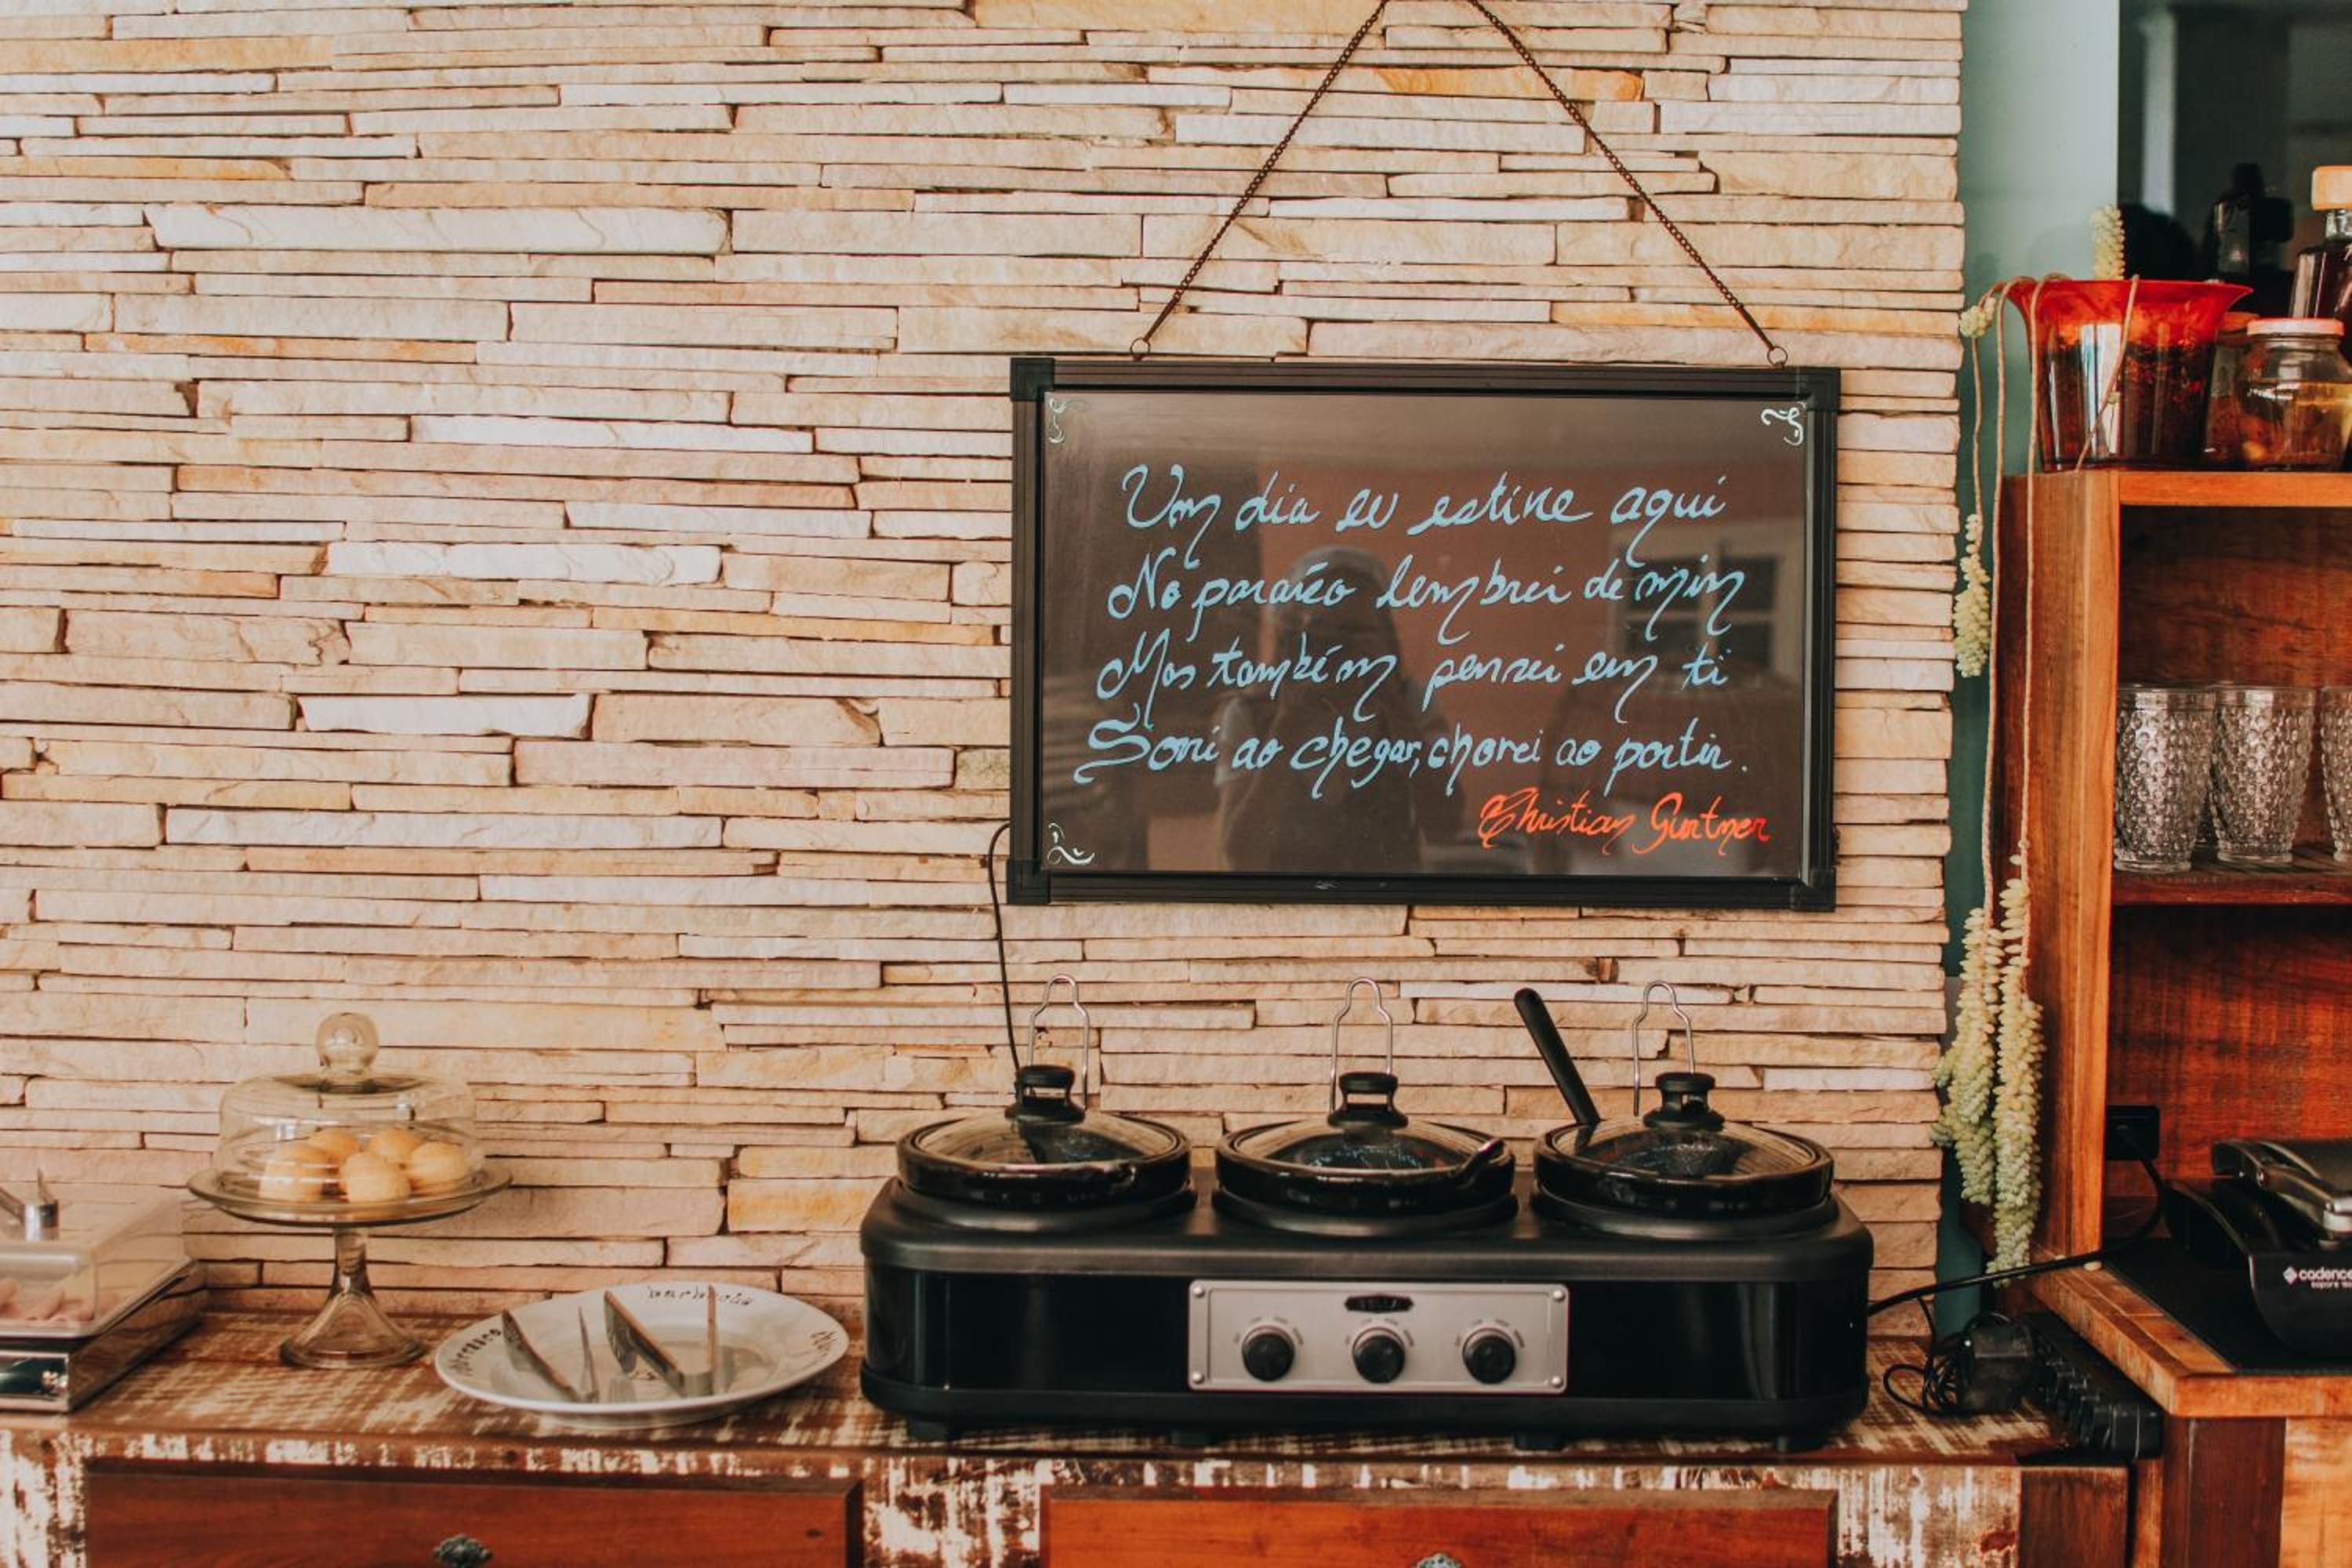 Um dia eu estive aqui
No paraíso lembrei de mim
Mas também pensei em ti
Sorri ao chegar, chorei ao partir.
Christian Gurtner
cadence